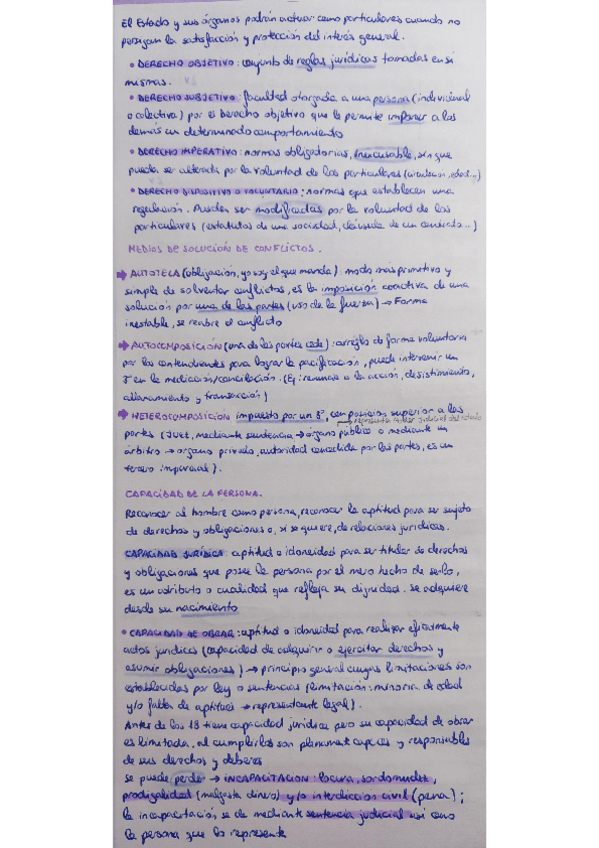 El Estado y sus órganos podrán actuar como particulares cuando no
persigan la satisfacción y protección del interés general.
• DERECHO OBJETIVO: conjunto de reglas jurídicas tomadas en sí
mismas.
• DERECHO SUBJETIVO: facultad otorgada a una persona (individual
o colectiva) por el Derecho objetivo que le permite imponer a los
demás un determinado comportamiento
• DERECHO IMPERATIVO: normas obligatorias, inexcusable, sin que
pueda ser alterada por la voluntad de los particulares (circulación, edad...)
• DERECHO DISPOSITIVO O VOLUNTARIO: normas que establecen una
regulación. Pueden ser modificadas por la voluntad de los
particulares (estatutos de una sociedad, cláusula de un contrato...)
MEDIOS DE SOLUCIÓN DE CONFLICTOS.
→ AUTOTELA (obligación, yo soy el que manda): modo más primitivo y
simple de solventar conflictos, es la imposición coactiva de una
solución por una de las partes (uso de la fuerza) → Forma
inestable, se reabre el conflicto
→ AUTOCOMPOSICIÓN (una de las partes cede): arreglo de forma voluntaria
por los contendientes para lograr la pacificación, puede intervenir un
3º en la mediación/conciliación. (Ej: renuncia a la acción, desistimiento,
allanamiento y transacción)
→ HETEROCOMPOSICIÓN impuesto por un 3º, con posición superior a las
→ representa Poder Judicial del Estado
partes (Juez, mediante sentencia → órgano público o mediante un
árbitro → órgano privado, autoridad concedida por las partes, es un
tercero imparcial).
CAPACIDAD DE LA PERSONA.
Reconocer al hombre como persona, reconocer la aptitud para ser sujeto
de derechos y obligaciones o, si se quiere, de relaciones jurídicas.
CAPACIDAD JURÍDICA: aptitud o idoneidad para ser titular de derechos
y obligaciones que posee la persona por el mero hecho de serlo,
es un atributo o cualidad que refleja su dignidad. Se adquiere
desde su nacimiento
• CAPACIDAD DE OBRAR: aptitud o idoneidad para realizar eficazmente
actos jurídicos (capacidad de adquirir o ejercitar derechos y
asumir obligaciones) → principio general cuyas limitaciones son
establecidas por ley o sentencias (limitación: minoría de edad
y/o faltos de aptitud → representante legal).
Antes de los 18 tiene capacidad jurídica pero su capacidad de obrar
es limitada, al cumplirlos son plenamente capaces y responsables
de sus derechos y deberes
se puede perder → INCAPACITACIÓN: locura, sordomudez,
prodigalidad (malgasta dinero) y/o interdicción civil (pena);
la incapacitación se da mediante sentencia judicial así como
la persona que lo represente